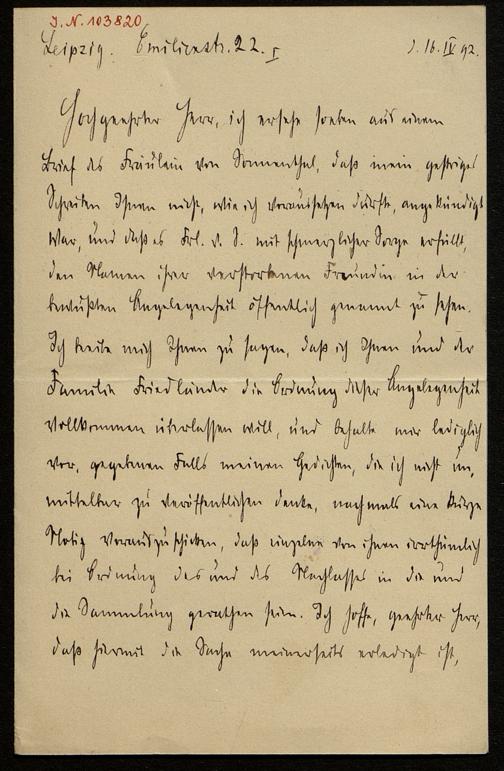 J. N. 103820
Leipzig. Emilienstr. 22. I
d. 16. IV 92.
Hochgeehrter Herr, ich ersehe soeben aus einem
Brief des Fräulein von Sonnenthal, daß mein gestriges
Schreiben Ihnen nicht, wie ich voraussetzen durfte, angekündigt
war, und daß es Frl. v. S. mit schmerzlicher Sorge erfüllt,
den Namen ihrer verstorbenen Freundin in der
bewußten Angelegenheit öffentlich genannt zu sehen.
Ich beeile mich Ihnen zu sagen, daß ich Ihnen und der
Familie Friedländer die Ordnung dieser Angelegenheit
vollkommen überlassen will, und behalte mir lediglich
vor, gegebenen Falls meinen Gedichten, die ich nicht un,
mittelbar zu veröffentlichen denke, nochmals eine kurze
Notiz vorauszuschicken, daß einzelne von ihnen irrthümlich
bei Ordnung des und des Nachlasses in die und
die Sammlung gerathen seien. Ich hoffe, geehrter Herr,
daß hiermit die Sache meinerseits erledigt ist,